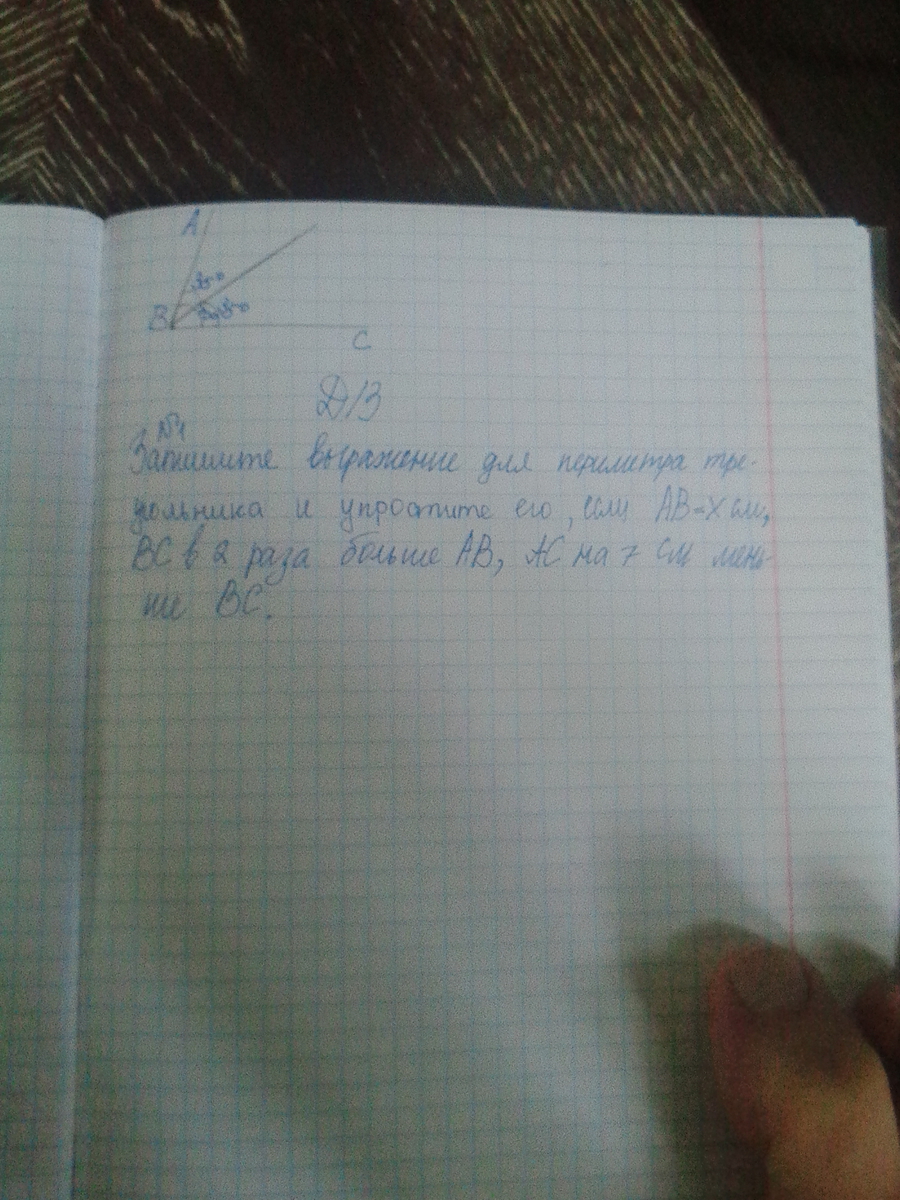 A
B
C
Д/З
№1
Запишите выражение для периметра тре-
угольника и упростите его, если AB=X см,
BC в 2 раза больше AB, AC на 7 см мень-
ше BC.